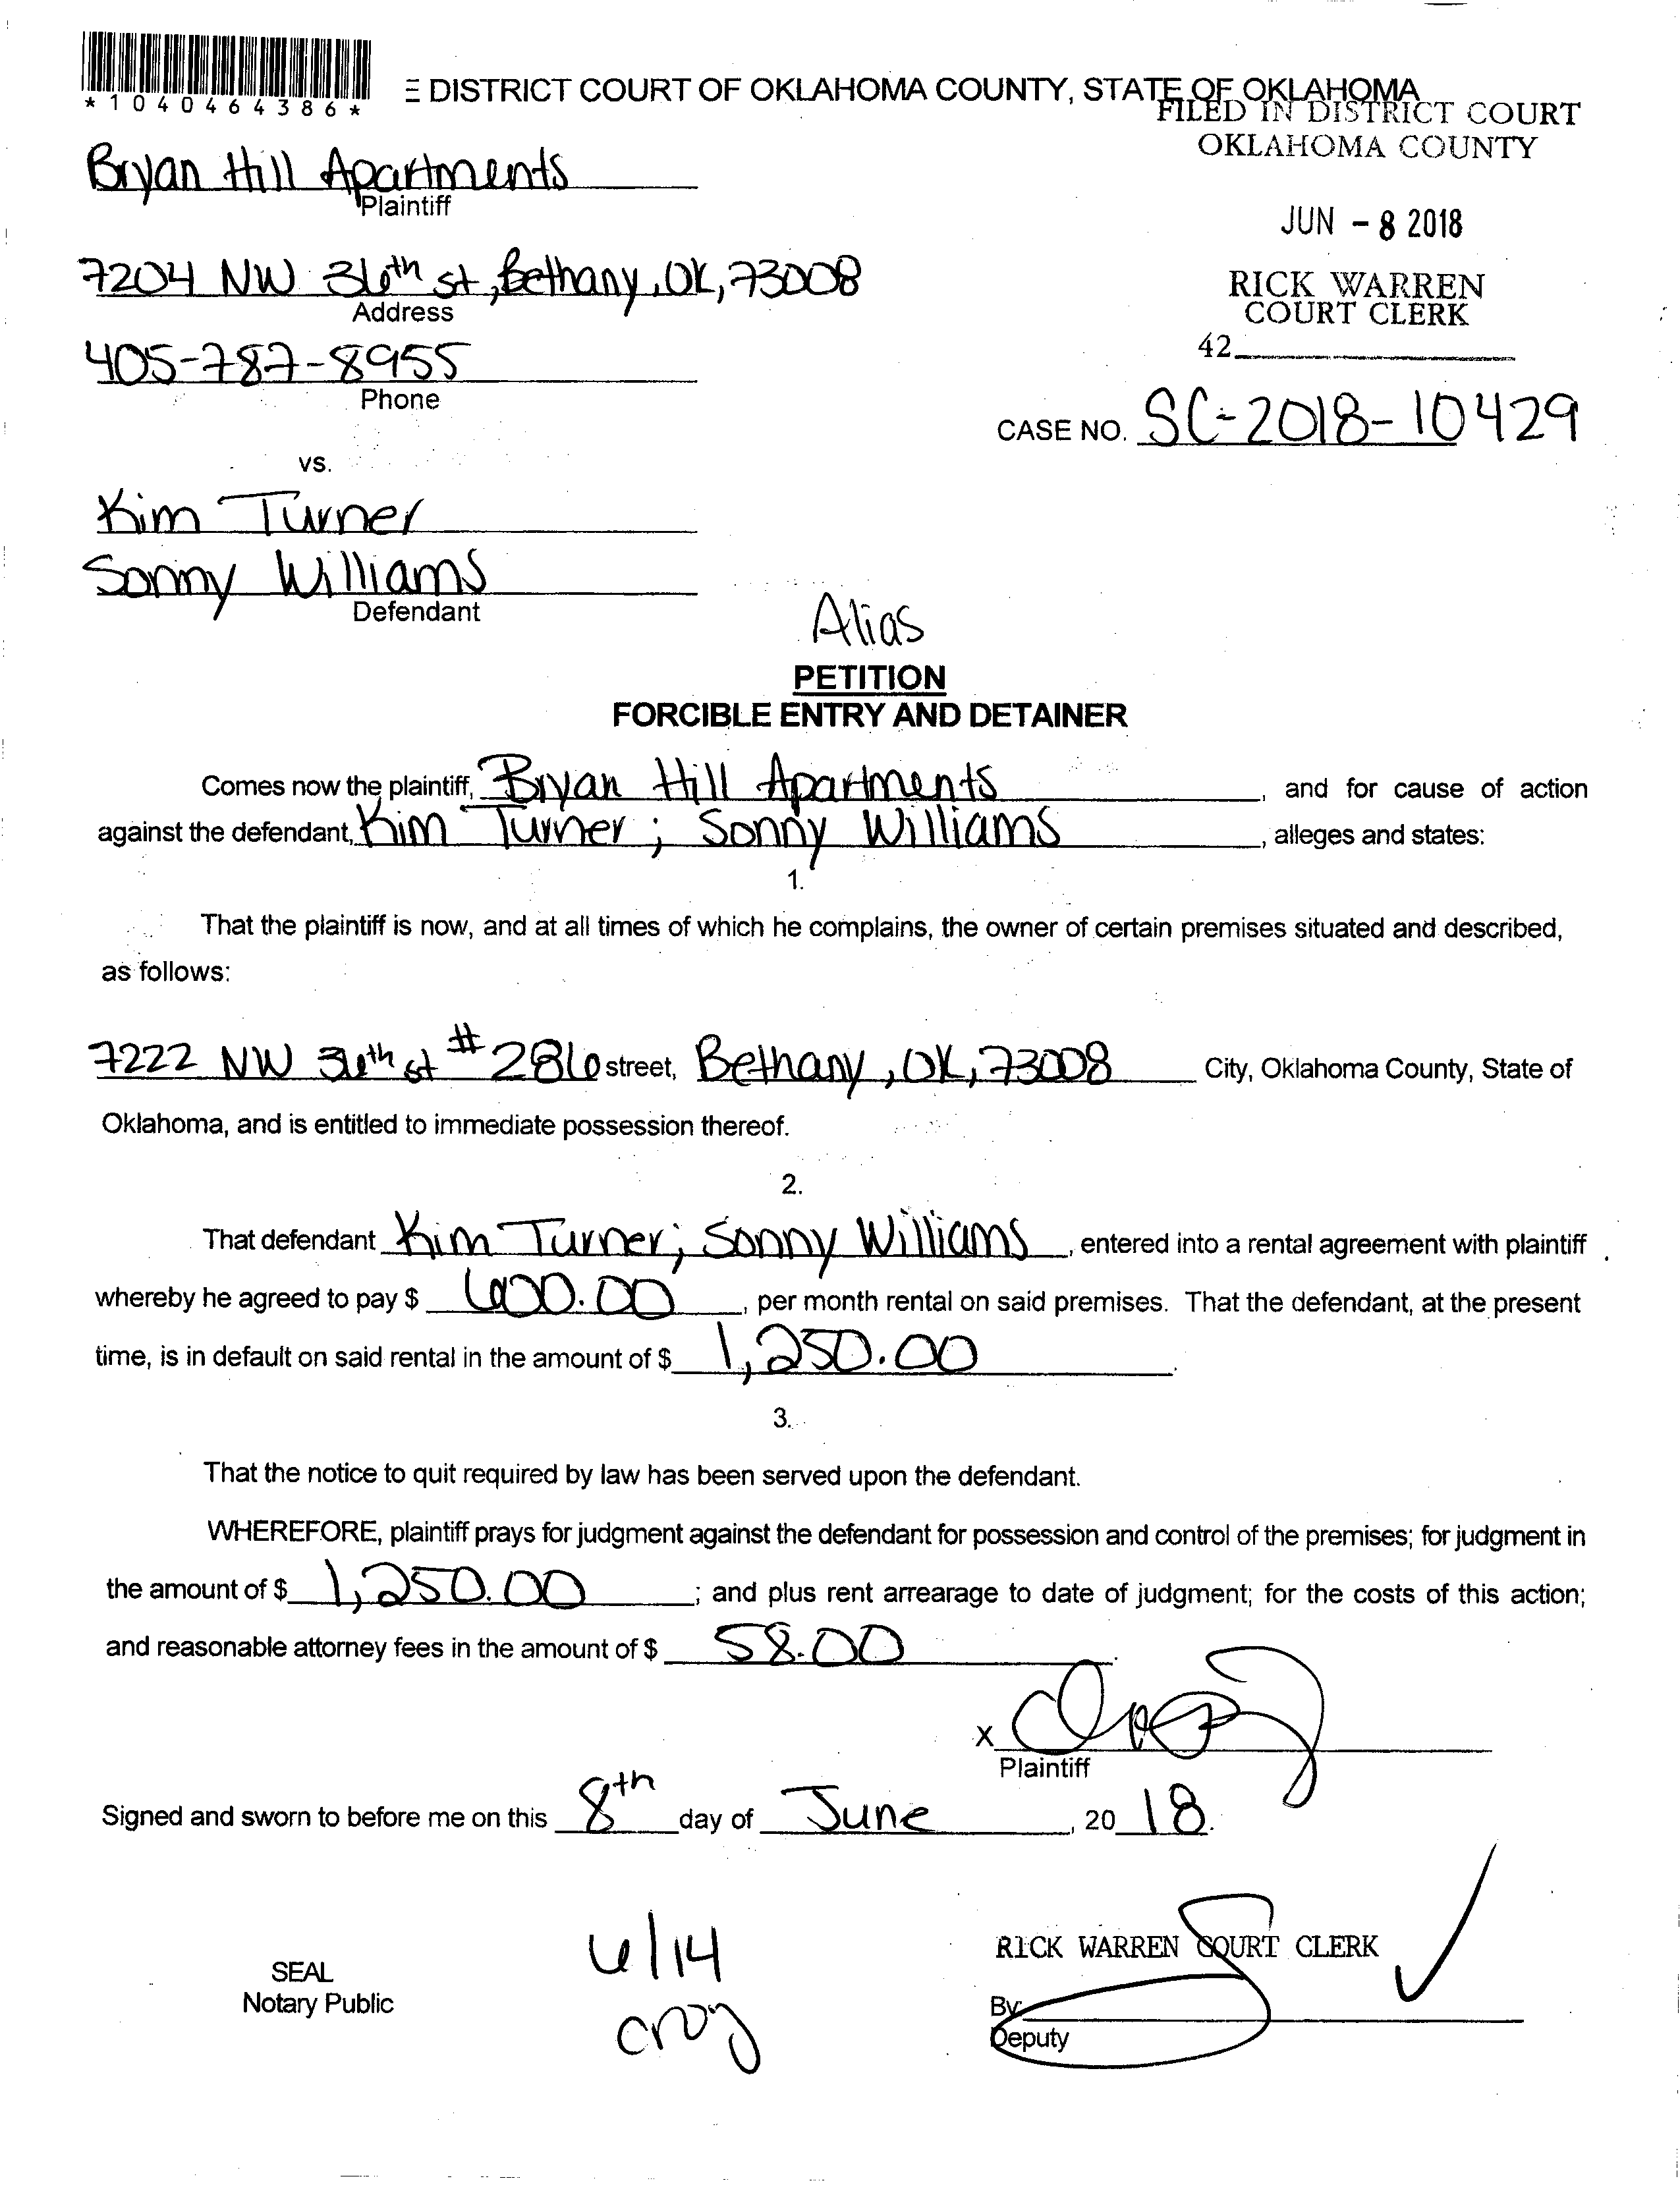 *1040464386*
E DISTRICT COURT OF OKLAHOMA COUNTY, STATE OF OKLAHOMA
FILED IN DISTRICT COURT
OKLAHOMA COUNTY
Bryan Hill Apartments
Plaintiff
JUN - 8 2018
7204 NW 36th st, Bethany, OK, 73008
Address
RICK WARREN
COURT CLERK
42
405-787-8955
Phone
CASE NO. SC-2018-10429
vs.
Kim Turner
Sonny Williams
Defendant
Alias
PETITION
FORCIBLE ENTRY AND DETAINER
Comes now the plaintiff, Bryan Hill Apartments, and for cause of action
against the defendant, Kim Turner; Sonny Williams, alleges and states:
1.
That the plaintiff is now, and at all times of which he complains, the owner of certain premises situated and described,
as follows:
7222 NW 36th st #286 street, Bethany, OK, 73008 City, Oklahoma County, State of
Oklahoma, and is entitled to immediate possession thereof.
2.
That defendant Kim Turner; Sonny Williams, entered into a rental agreement with plaintiff
whereby he agreed to pay $ 600.00, per month rental on said premises. That the defendant, at the present
time, is in default on said rental in the amount of $ 1,250.00.
3.
That the notice to quit required by law has been served upon the defendant.
WHEREFORE, plaintiff prays for judgment against the defendant for possession and control of the premises; for judgment in
the amount of $ 1,250.00; and plus rent arrearage to date of judgment; for the costs of this action;
and reasonable attorney fees in the amount of $ 58.00.
X
Plaintiff
Signed and sworn to before me on this 8th day of June, 2018.
6/14
RICK WARREN COURT CLERK
SEAL
Notary Public
By
Deputy